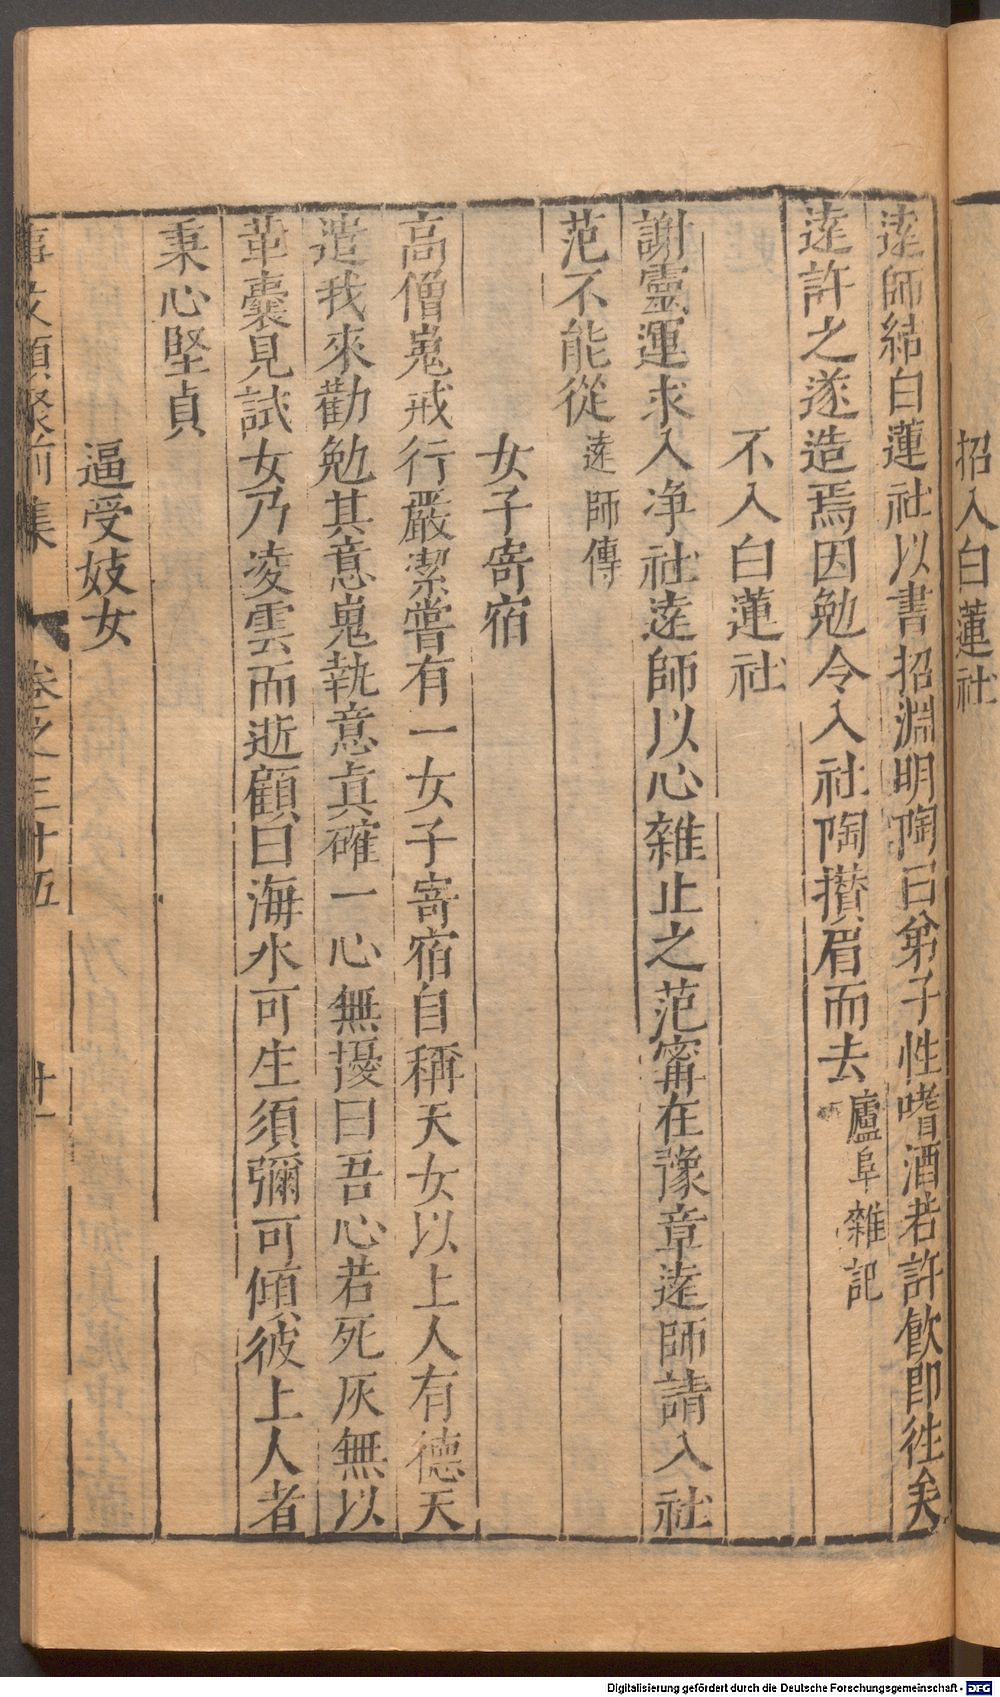 招入白蓮社
逺師結白蓮社以書招淵明陶曰弟子性嗜酒若許飲即徃矣
逺許之遂造焉因勉令入社陶攅眉而去廬阜雜記
不入白蓮社
謝靈運求入净社逺師以心雜止之范甯在豫章逺師請入社
范不能從逺師傳
女子寄宿
高僧嵬戒行嚴潔嘗有一女子寄宿自稱天女以上人有德天
遣我來勸勉其意嵬執意貞確一心無擾曰吾心若死灰無以
革囊見試女乃凌雲而逝顧曰海水可生須彌可傾彼上人者
秉心堅貞
逼受妓女
事文類聚前集 卷之三十五 廿一
Digitalisierung gefördert durch die Deutsche Forschungsgemeinschaft - DFG